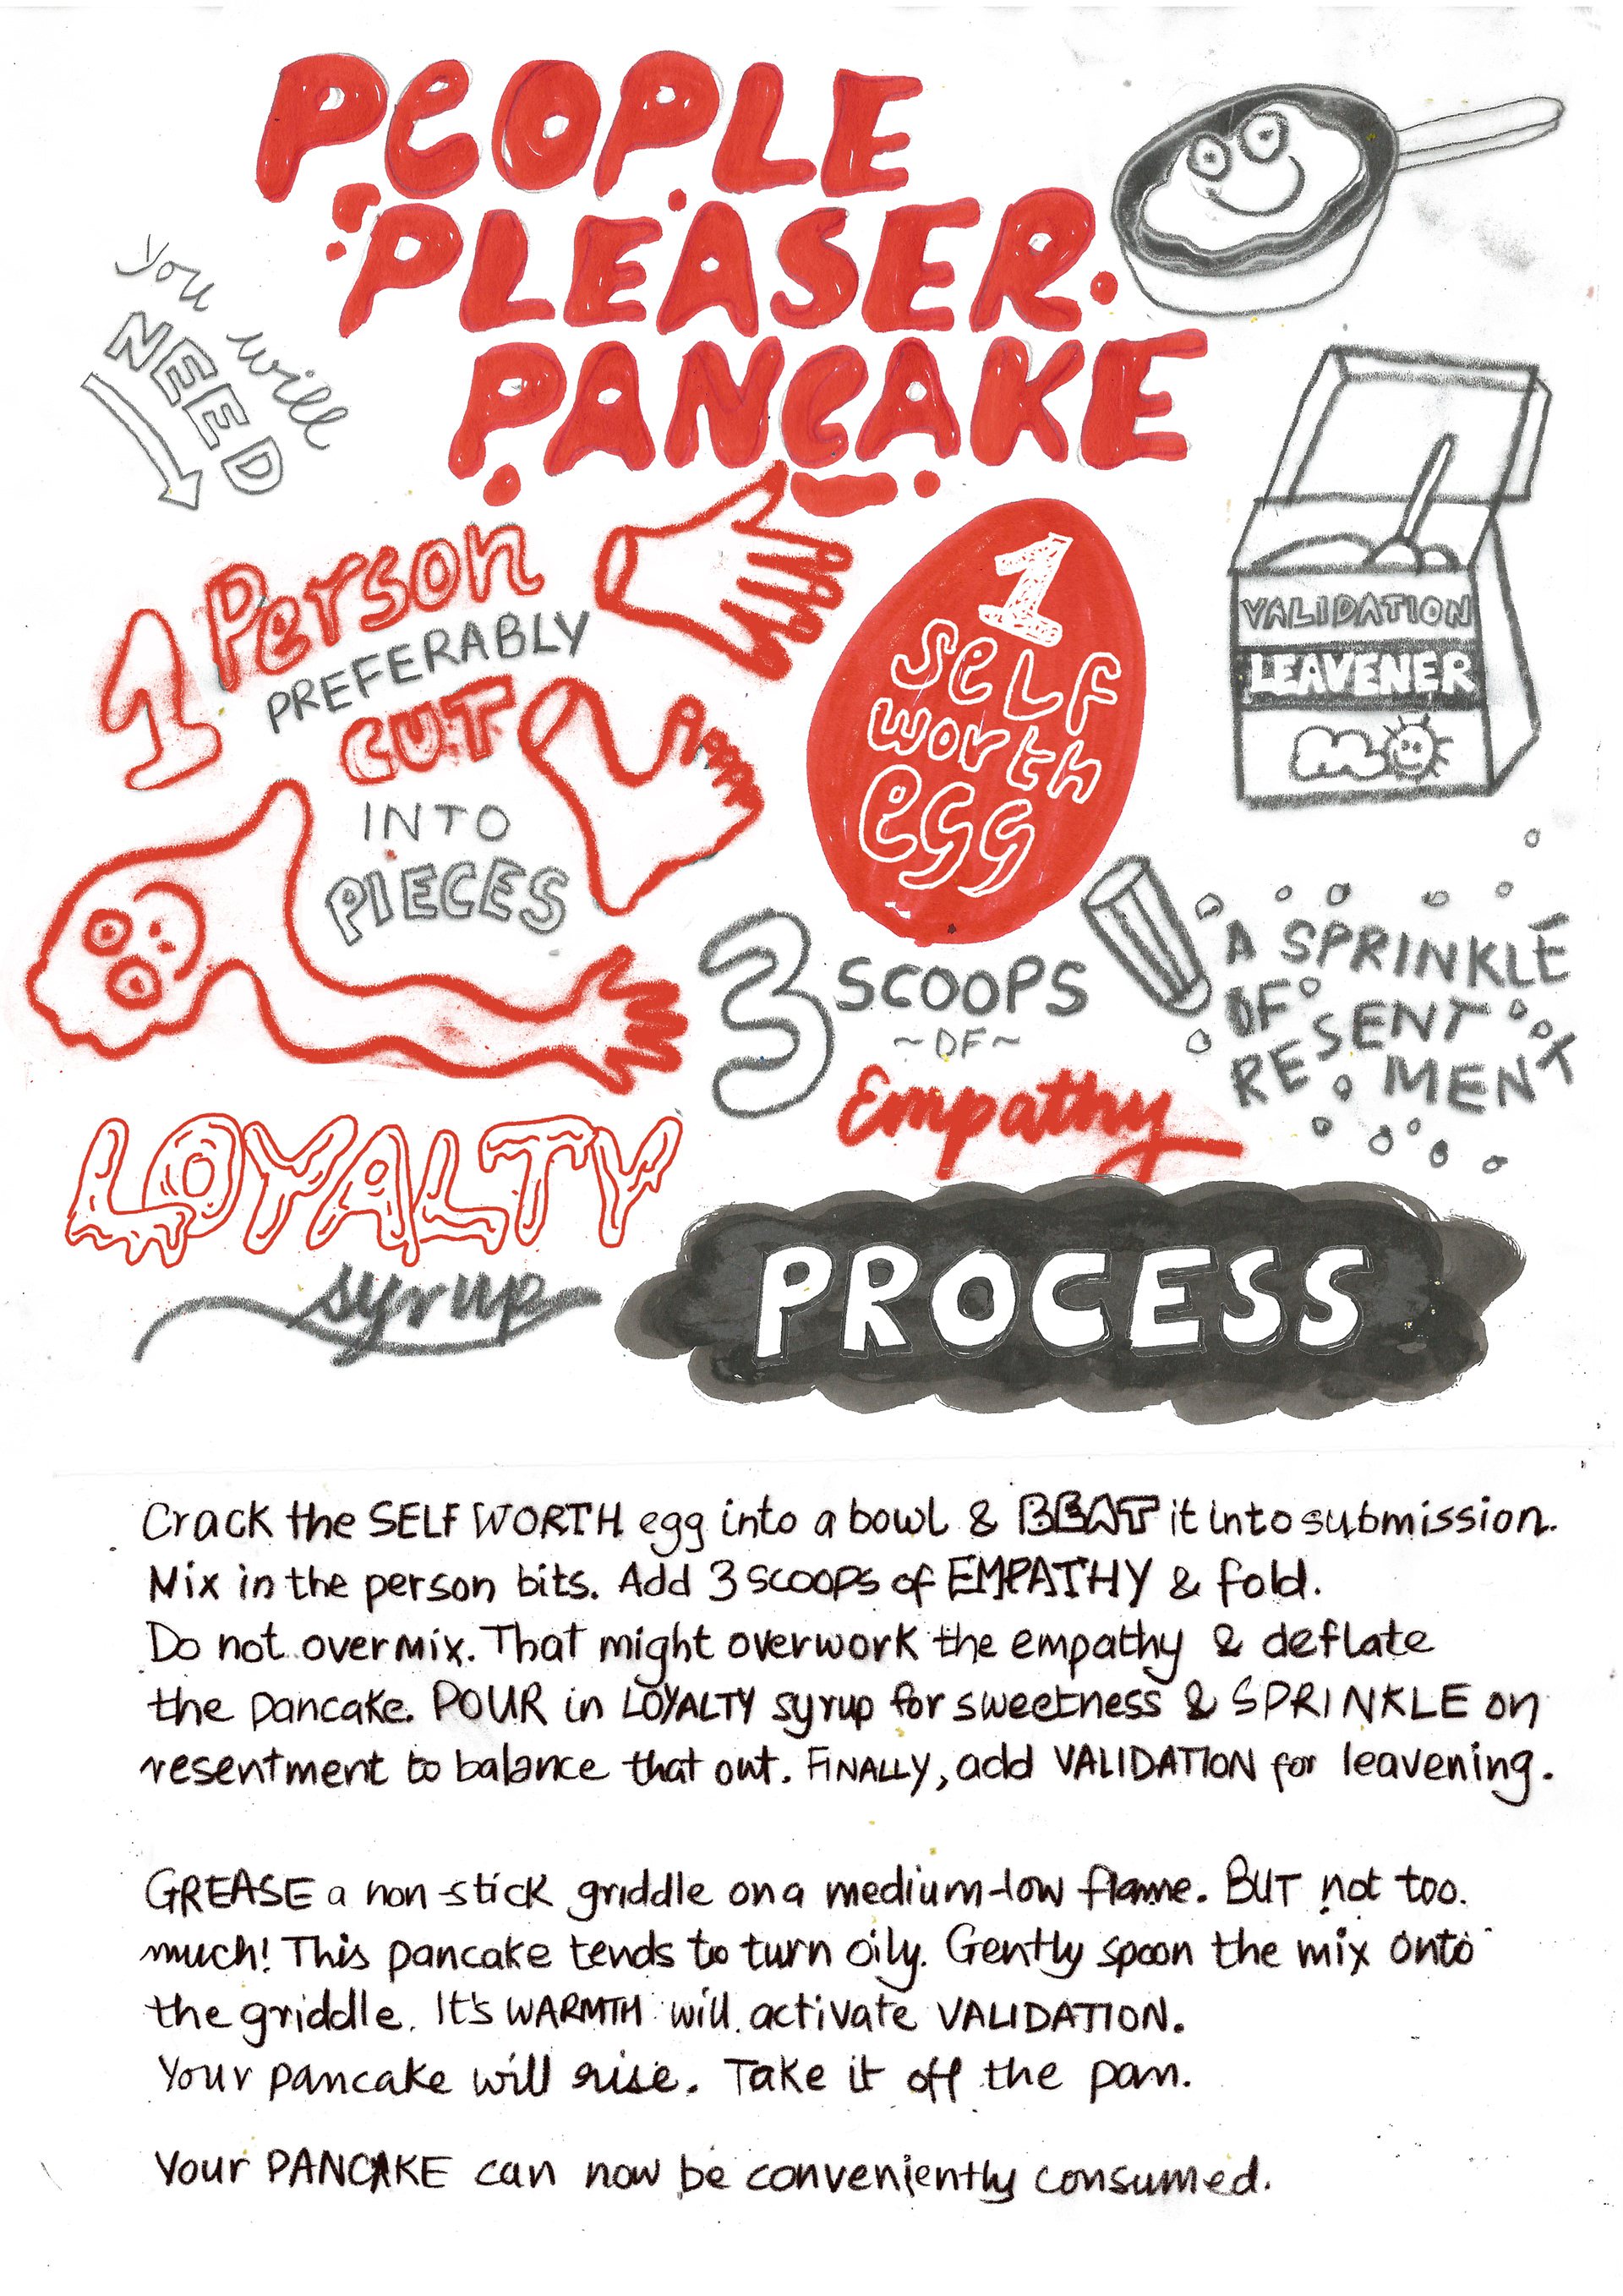 PEOPLE
PLEASER
PANCAKE
you will
NEED
1 Person
PREFERABLY
CUT
INTO
PIECES
1
self
worth
egg
VALIDATION
LEAVENER
3 SCOOPS
~OF~
Empathy
A SPRINKLE
OF
RESENT
MENT
LOYALTY
syrup
PROCESS
Crack the SELF WORTH egg into a bowl & BEAT it into submission.
Mix in the person bits. Add 3 scoops of EMPATHY & fold.
Do not overmix. That might overwork the empathy & deflate
the pancake. POUR in LOYALTY syrup for sweetness & SPRINKLE on
resentment to balance that out. FINALLY, add VALIDATION for leavening.
GREASE a non-stick griddle on a medium-low flame. BUT not too
much! This pancake tends to turn oily. Gently spoon the mix onto
the griddle. It's WARMTH will activate VALIDATION.
Your pancake will rise. Take it off the pan.
Your PANCAKE can now be conveniently consumed.